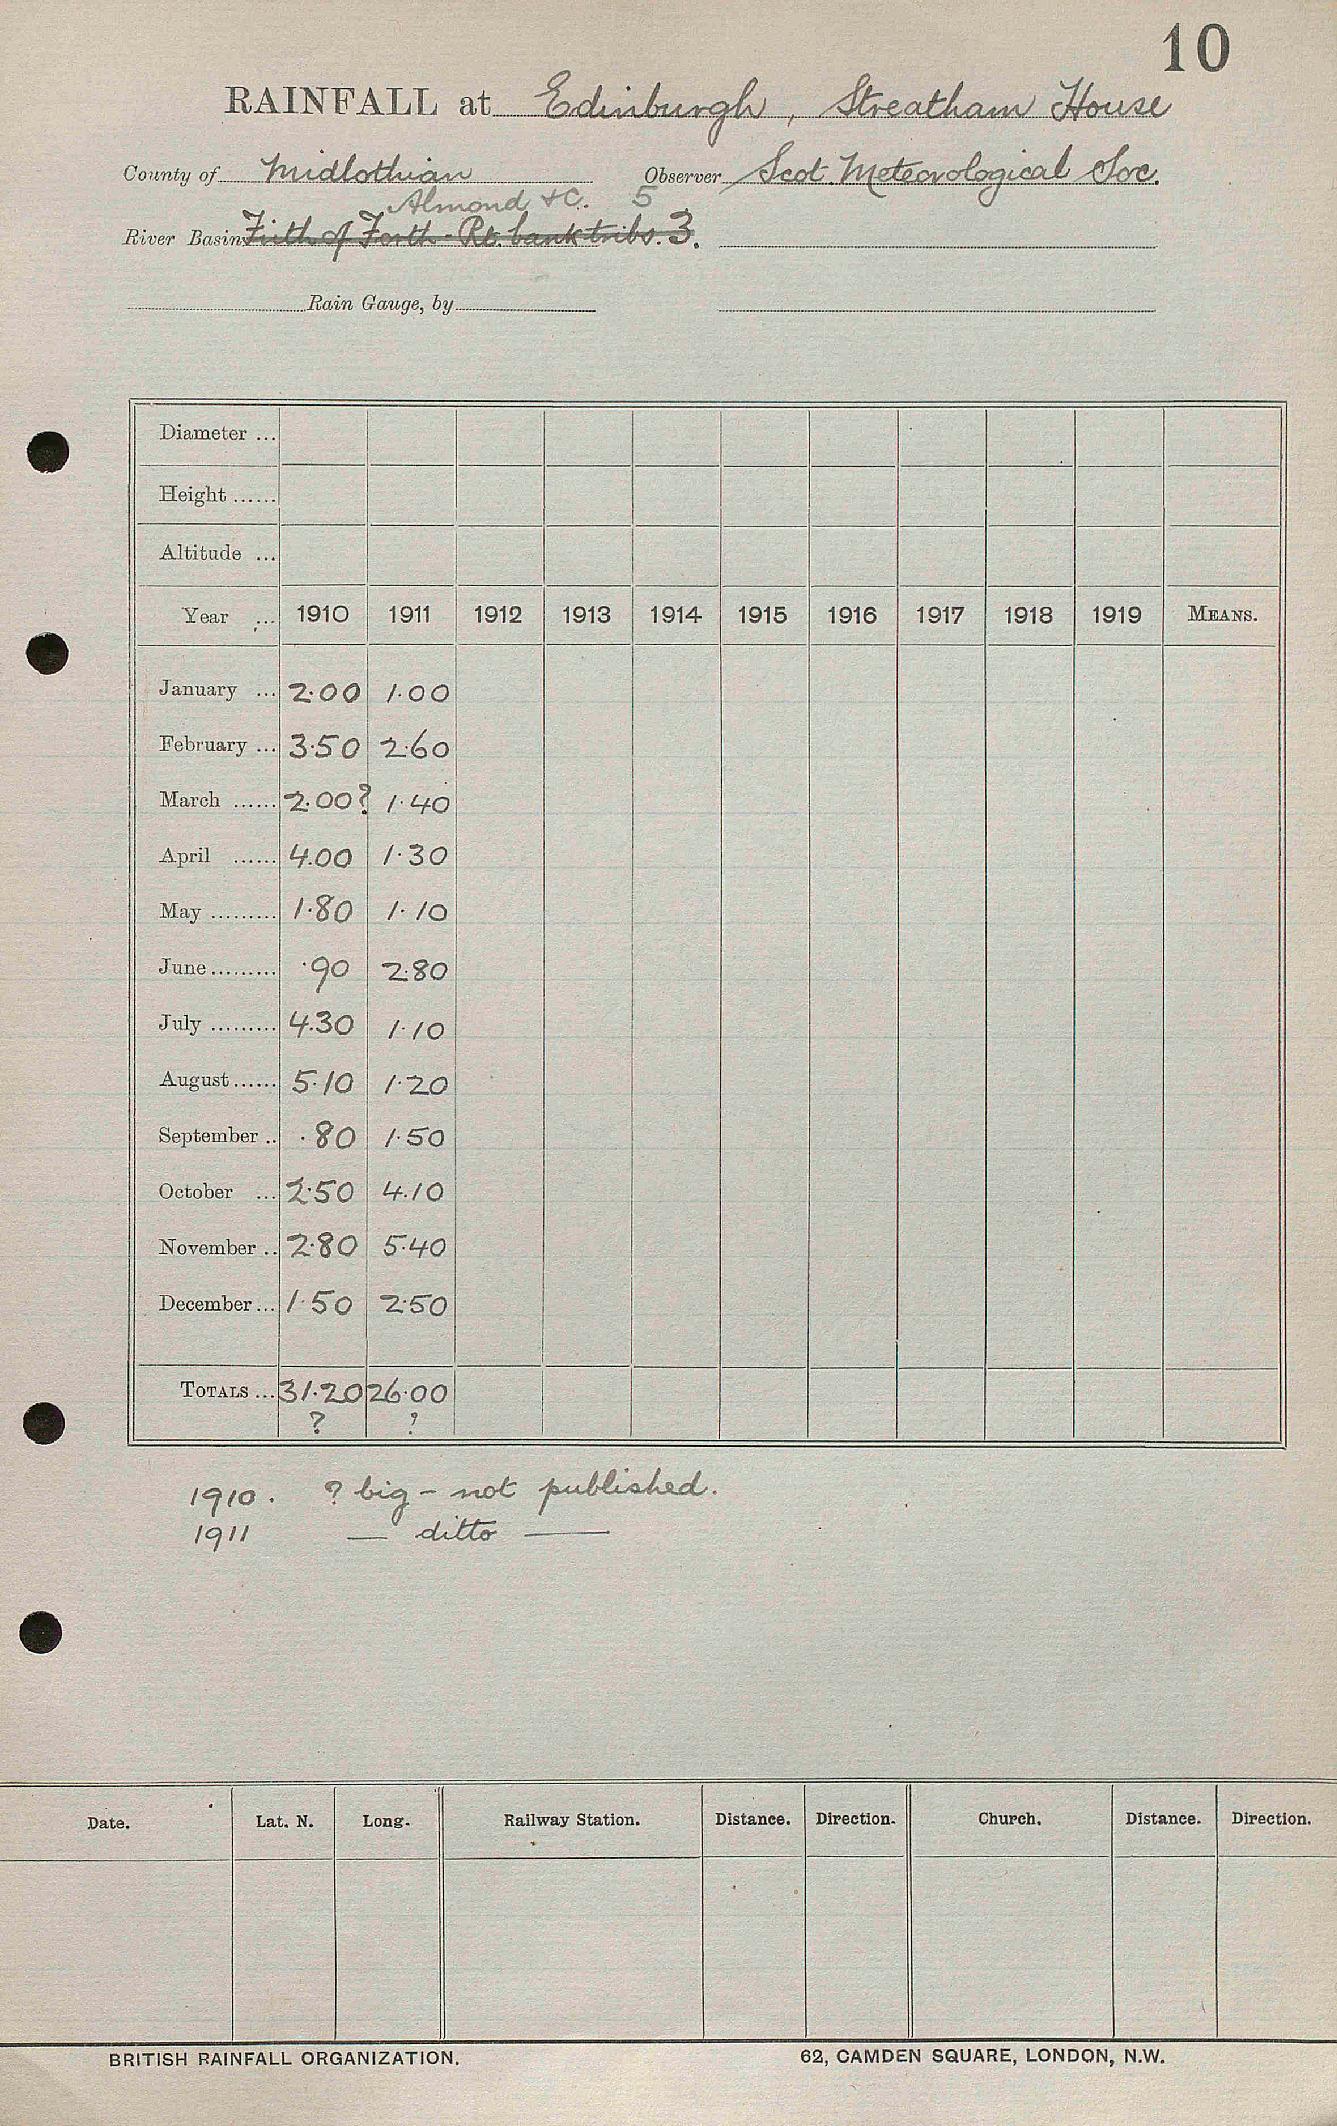 10
RAINFALL at Edinburgh, Streatham House
County of Midlothian Observer Scot. Meteorological Soc.
Almond &C. 5
River Basin Firth of Forth - Rt. bank tribs. 3.
Rain Gauge, by
Diameter ...
Height ......
Altitude ...
Year ... 1910 1911 1912 1913 1914 1915 1916 1917 1918 1919 MEANS.
January ... 2.00 1.00
February ... 3.50 2.60
March ...... 2.00? 1.40
April ...... 4.00 1.30
May ......... 1.80 1.10
June ......... .90 2.80
July ......... 4.30 1.10
August ...... 5.10 1.20
September .. .80 1.50
October ... 2.50 4.10
November .. 2.80 5.40
December ... 1.50 2.50
TOTALS ... 31.20 26.00
? ?
1910. ? big - not published.
1911 — ditto —
Date. Lat. N. Long. Railway Station. Distance. Direction. Church. Distance. Direction.
BRITISH RAINFALL ORGANIZATION. 62, CAMDEN SQUARE, LONDON, N.W.